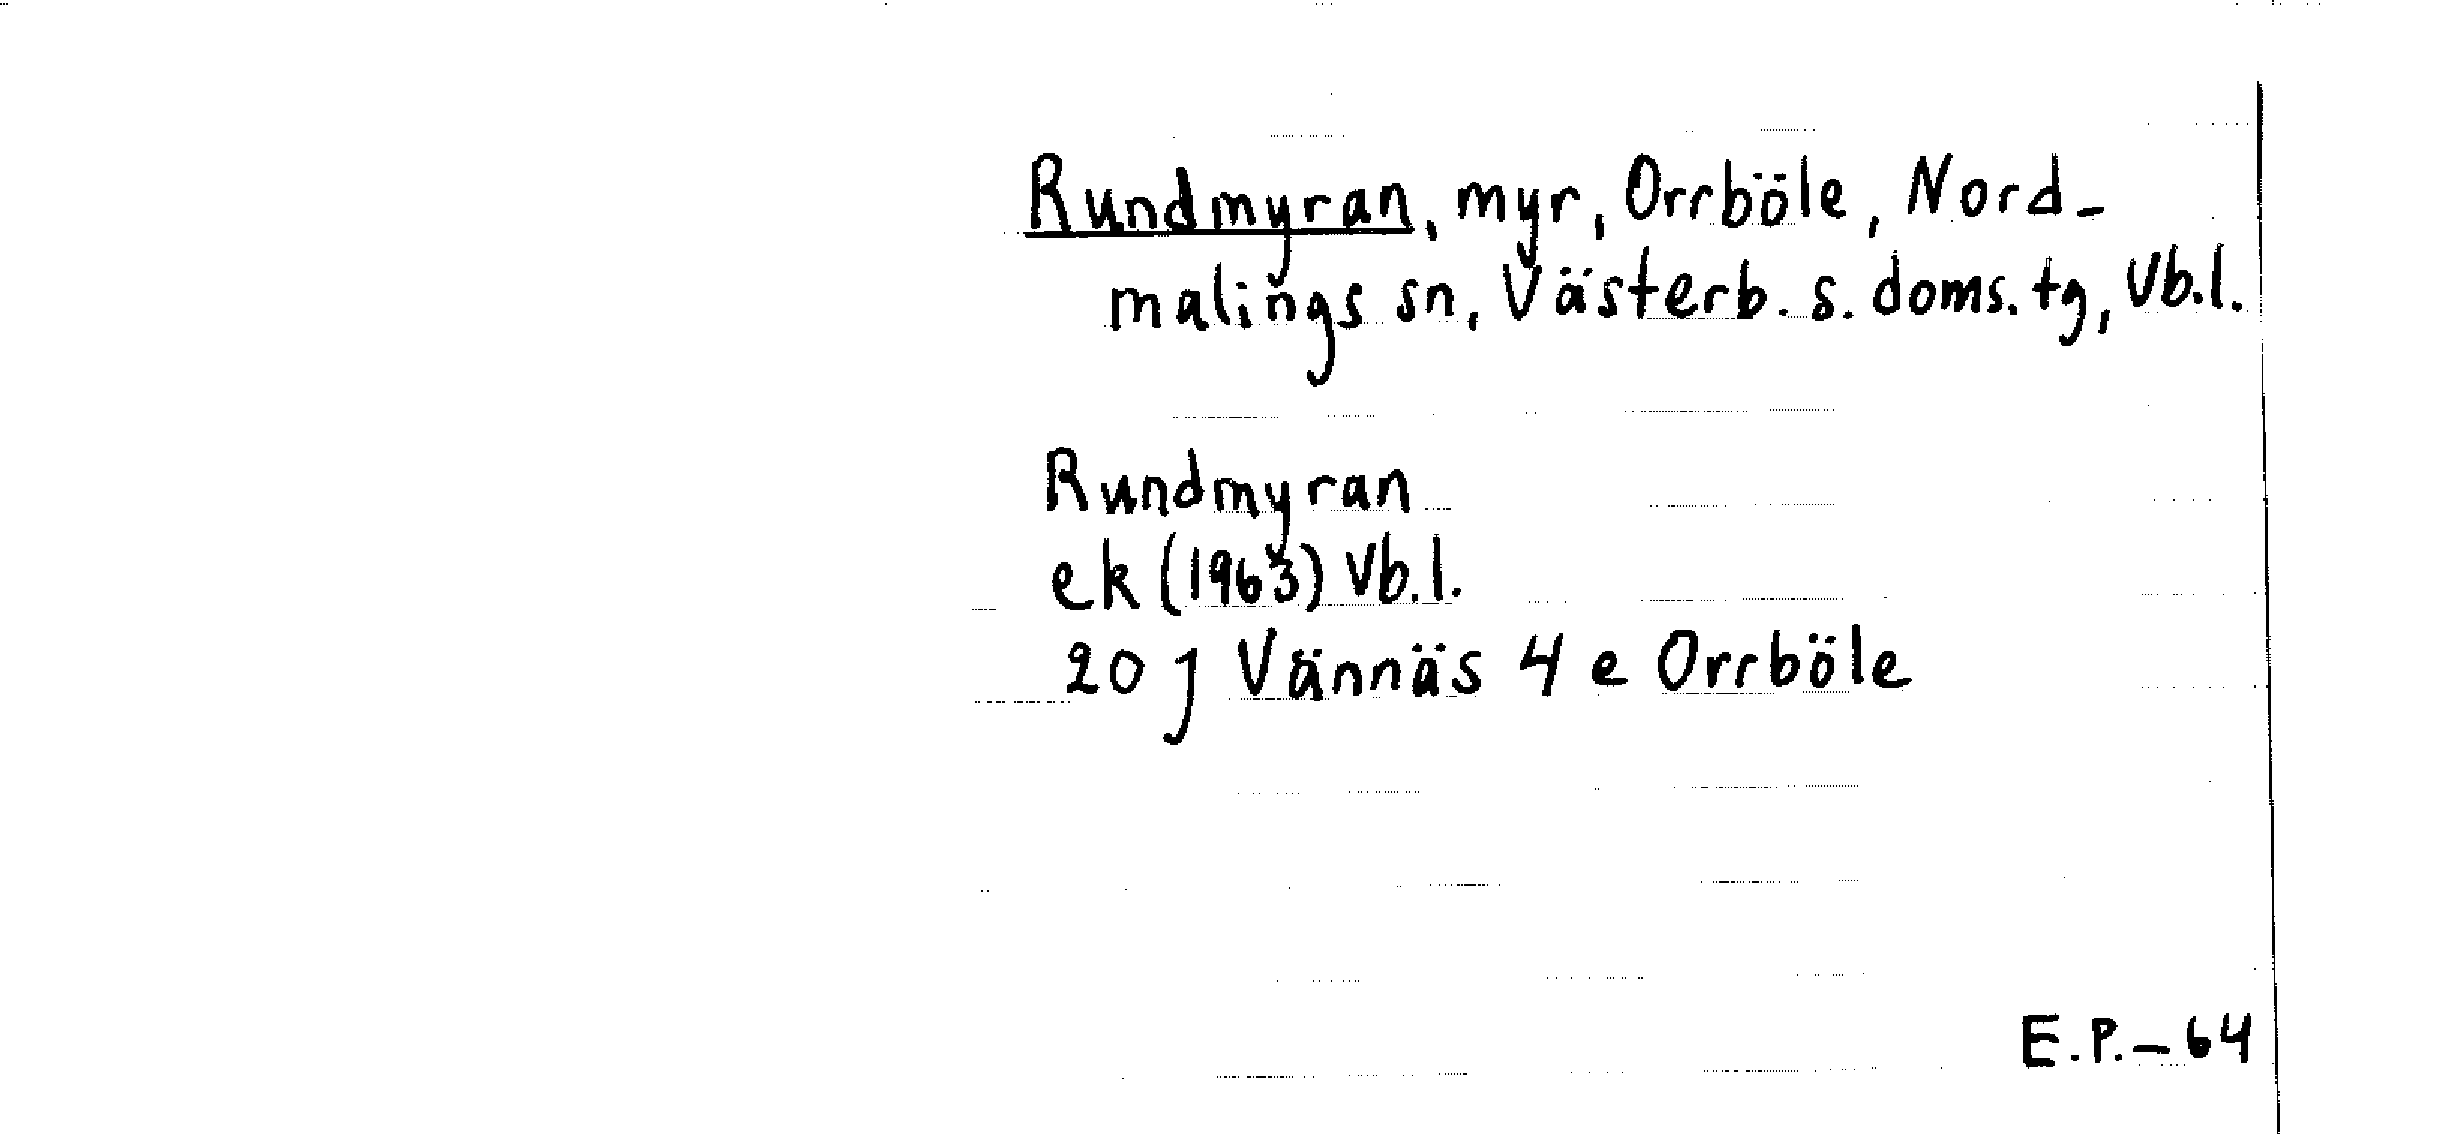 Rundmyran, myr, Orrböle, Nord-
malings sn, Västerb. s. doms. tg, Vb.l.
Rundmyran
ek (1963) Vb.l.
20 J Vännäs 4 e Orrböle
E.P. – 64